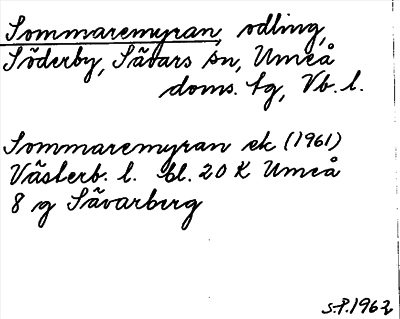 Sommaremyran, odling,
Söderby, Sävars sn, Umeå
doms. tg, Vb. l.
Sommaremyran ek (1961)
Västerb. l. bl. 20 K Umeå
8 g Sävarberg
S.P. 1962